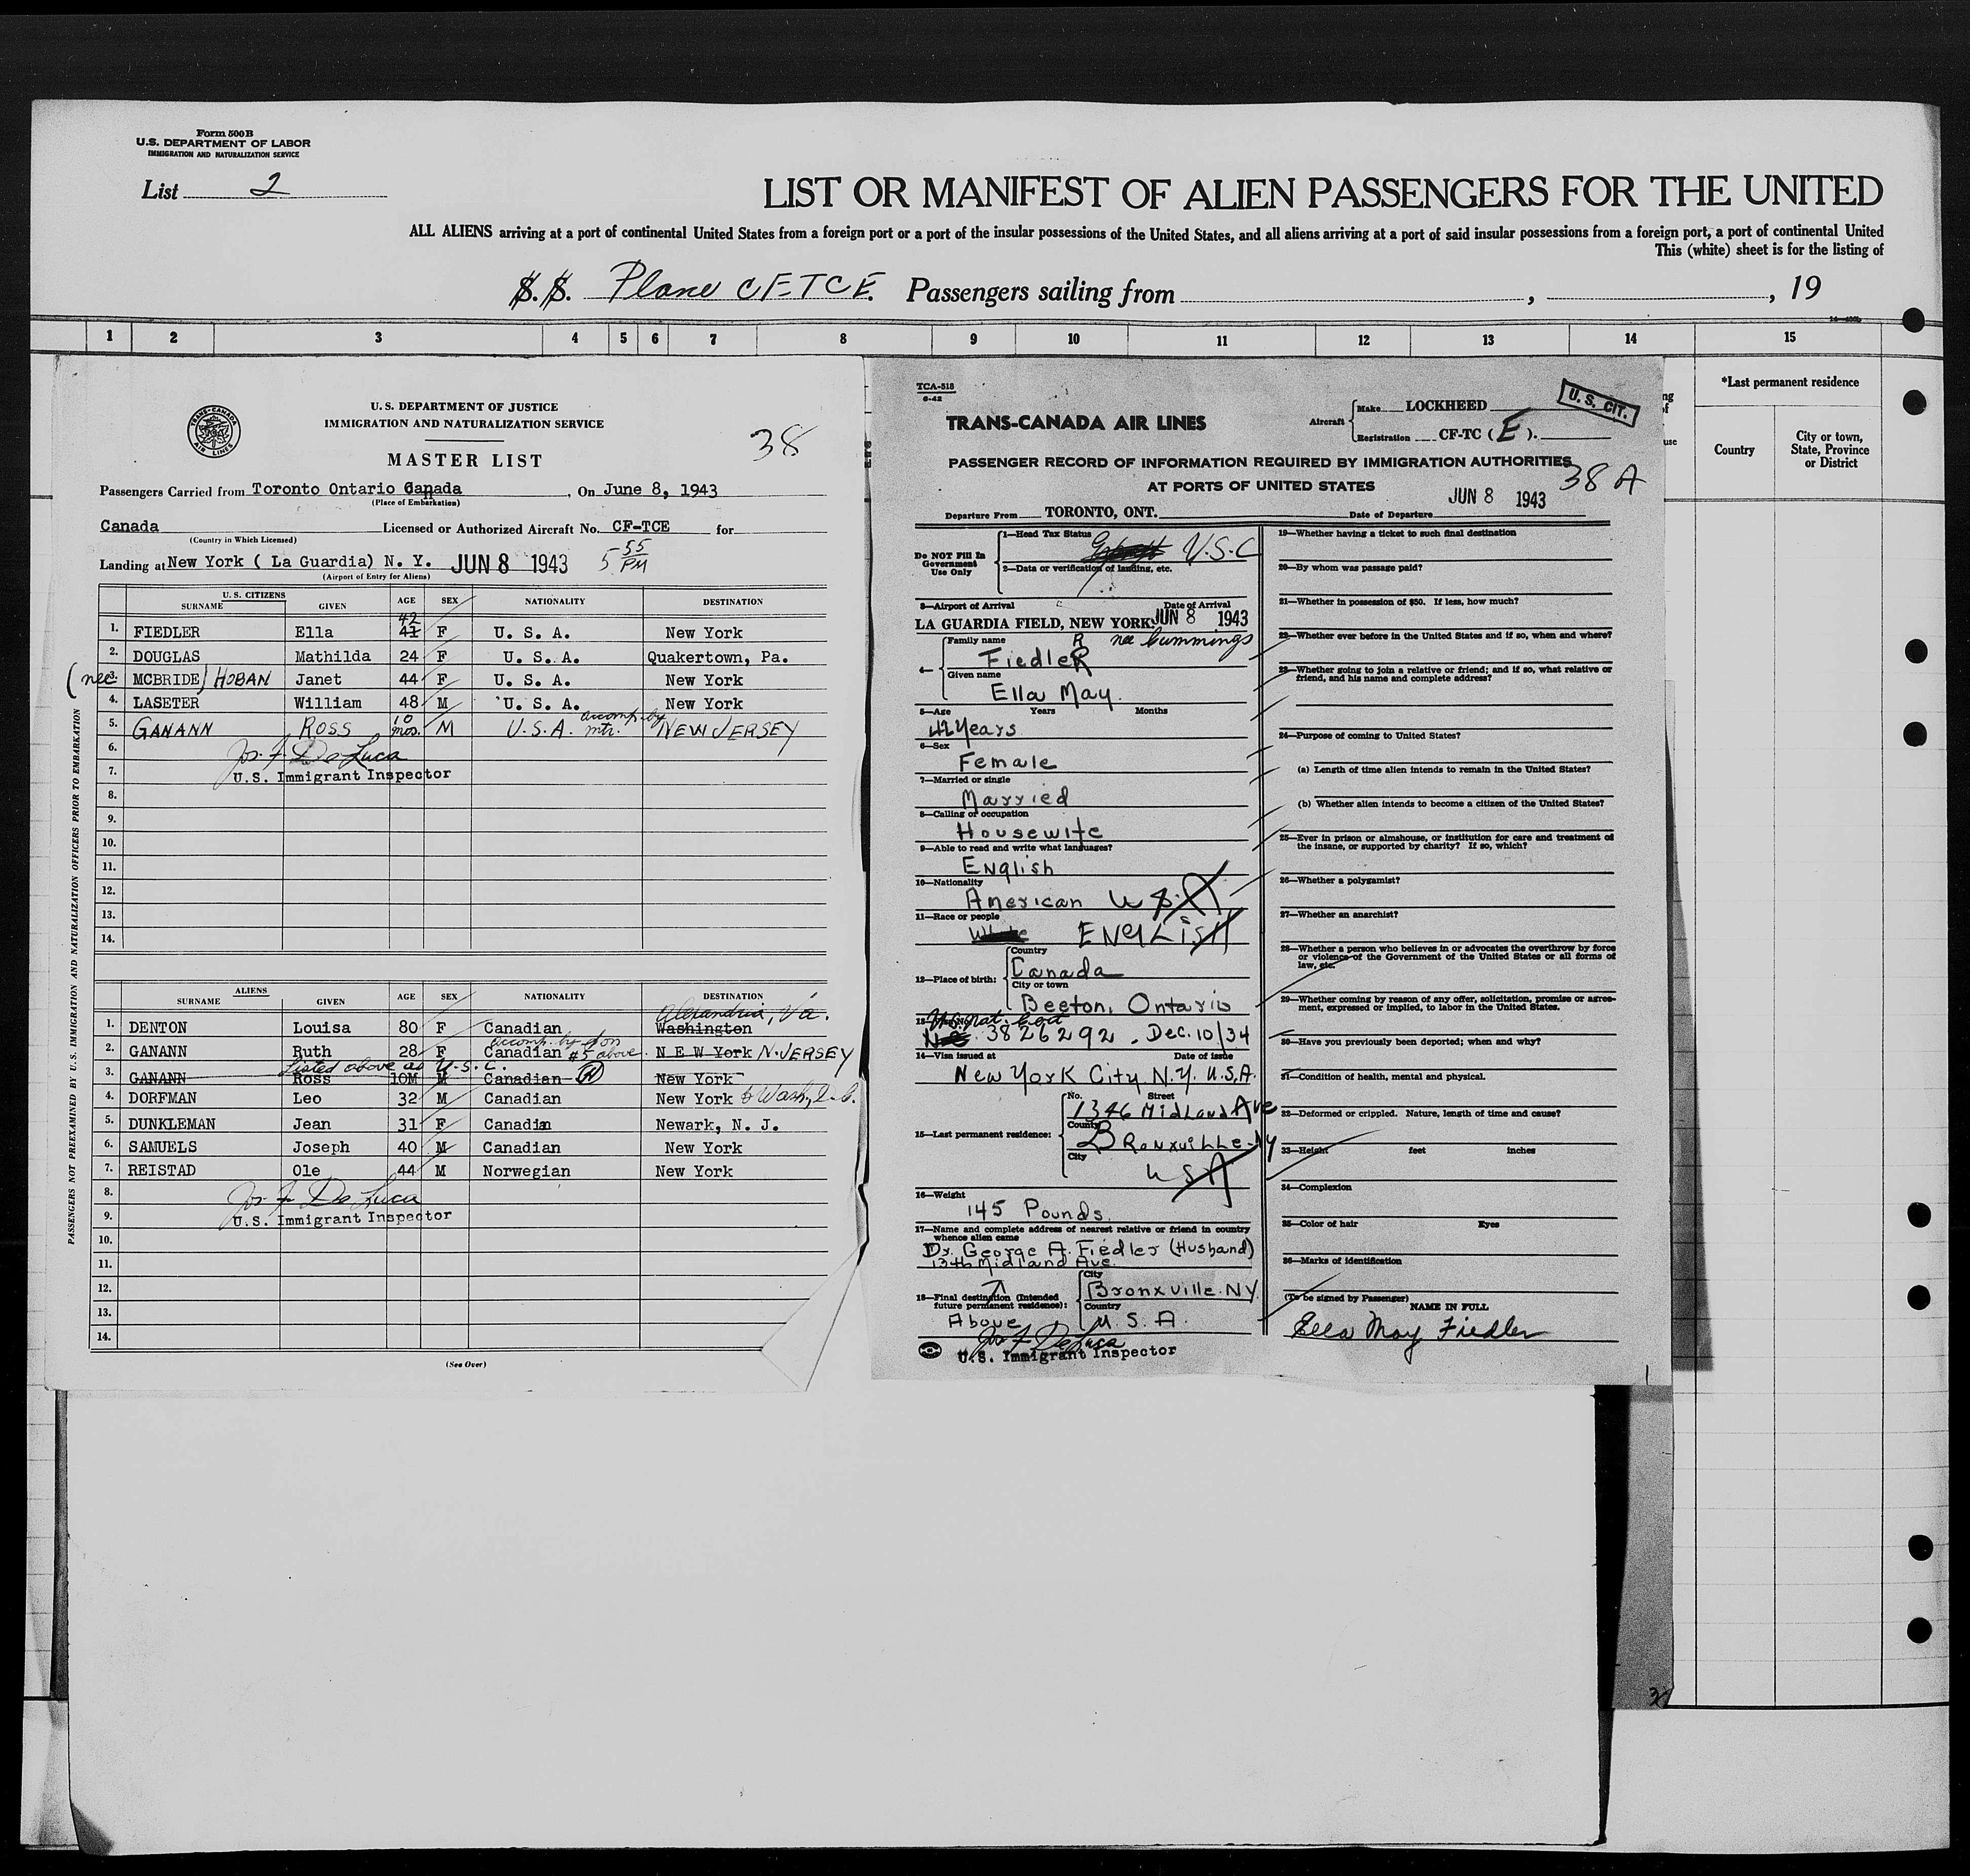 Form 500B
U.S. DEPARTMENT OF LABOR
IMMIGRATION AND NATURALIZATION SERVICE
List 2
LIST OR MANIFEST OF ALIEN PASSENGERS FOR THE UNITED
ALL ALIENS arriving at a port of continental United States from a foreign port or a port of the insular possessions of the United States, and all aliens arriving at a port of said insular possessions from a foreign port, a port of continental United
This (white) sheet is for the listing of
S.S. Plane CF-TCE. Passengers sailing from , , 19
1 2 3 4 5 6 7 8 9 10 11 12 13 14 15
*Last permanent residence
Country
City or town, State, Province or District
TRANS-CANADA AIR LINES
U. S. DEPARTMENT OF JUSTICE
IMMIGRATION AND NATURALIZATION SERVICE
38
MASTER LIST
Passengers Carried from Toronto Ontario Canada, On June 8, 1943
(Place of Embarkation)
Canada Licensed or Authorized Aircraft No. CF-TCE for
(Country in Which Licensed)
Landing at New York ( La Guardia) N. Y. JUN 8 1943 5 55 PM
(Airport of Entry for Aliens)
U. S. CITIZENS
SURNAME GIVEN AGE SEX NATIONALITY DESTINATION
1. FIEDLER Ella 41 42 F U. S. A. New York
2. DOUGLAS Mathilda 24 F U. S. A. Quakertown, Pa.
3. (nee MCBRIDE) HOBAN Janet 44 F U. S. A. New York
4. LASETER William 48 M U. S. A. New York
5. GANANN ROSS 10 mos. M U.S.A. accomp. by mtr. NEW JERSEY
6. Jos. F. De Luca
7. U.S. Immigrant Inspector
8.
9.
10.
11.
12.
13.
14.
ALIENS
SURNAME GIVEN AGE SEX NATIONALITY DESTINATION
Alexandria, Va.
1. DENTON Louisa 80 F Canadian Washington
accomp. by son
2. GANANN Ruth 28 F Canadian #5 above. N E W York N. JERSEY
Listed above as U.S.C.
3. GANANN Ross 10M M Canadian New York
4. DORFMAN Leo 32 M Canadian New York & Wash, D.C.
5. DUNKLEMAN Jean 31 F Canadian Newark, N. J.
6. SAMUELS Joseph 40 M Canadian New York
7. REISTAD Ole 44 M Norwegian New York
8. Jos. F. De Luca
9. U.S. Immigrant Inspector
10.
11.
12.
13.
14.
(See Over)
PASSENGERS NOT PREEXAMINED BY U.S. IMMIGRATION AND NATURALIZATION OFFICERS PRIOR TO EMBARKATION
TCA-518
6-42
TRANS-CANADA AIR LINES
Aircraft Make LOCKHEED
Registration CF-TC ( E ).
U. S. CIT.
PASSENGER RECORD OF INFORMATION REQUIRED BY IMMIGRATION AUTHORITIES
AT PORTS OF UNITED STATES
38 A
JUN 8 1943
Departure From TORONTO, ONT. Date of Departure
Do NOT Fill In Government Use Only
1—Head Tax Status U.S.C
2—Data or verification of landing, etc.
3—Airport of Arrival Date of Arrival
LA GUARDIA FIELD, NEW YORK JUN 8 1943
4— Family name nee Cummings
FiedleR R
Given name
Ella May.
5—Age Years Months
42 Years
6—Sex
Female
7—Married or single
Married
8—Calling or occupation
Housewife
9—Able to read and write what languages?
English
10—Nationality
American USA
11—Race or people
White ENGLISH
12—Place of birth: Country
Canada
City or town
Beeton, Ontario
U.S. Nat. Cert
No. 3826292. Dec. 10/34
14—Visa issued at Date of issue
New York City N.Y. U.S.A.
15—Last permanent residence: No. Street
1346 Midland Ave
County
BRonxville-Ny
City
USA
16—Weight
145 Pounds.
17—Name and complete address of nearest relative or friend in country whence alien came
Dr. George A. Fiedler (Husband)
1346 Midland Ave.
18—Final destination (Intended future permanent residence): City
Bronxville. NY
Country
Above U S. A.
Jos. F. De Luca
U.S. Immigrant Inspector
19—Whether having a ticket to such final destination
20—By whom was passage paid?
21—Whether in possession of $50. If less, how much?
22—Whether ever before in the United States and if so, when and where?
23—Whether going to join a relative or friend; and if so, what relative or friend, and his name and complete address?
24—Purpose of coming to United States?
(a) Length of time alien intends to remain in the United States?
(b) Whether alien intends to become a citizen of the United States?
25—Ever in prison or almshouse, or institution for care and treatment of the insane, or supported by charity? If so, which?
26—Whether a polygamist?
27—Whether an anarchist?
28—Whether a person who believes in or advocates the overthrow by force or violence of the Government of the United States or all forms of law, etc.
29—Whether coming by reason of any offer, solicitation, promise or agreement, expressed or implied, to labor in the United States.
30—Have you previously been deported; when and why?
31—Condition of health, mental and physical.
32—Deformed or crippled. Nature, length of time and cause?
33—Height feet inches
34—Complexion
35—Color of hair Eyes
36—Marks of identification
(To be signed by Passenger) NAME IN FULL
Ella May Fiedler